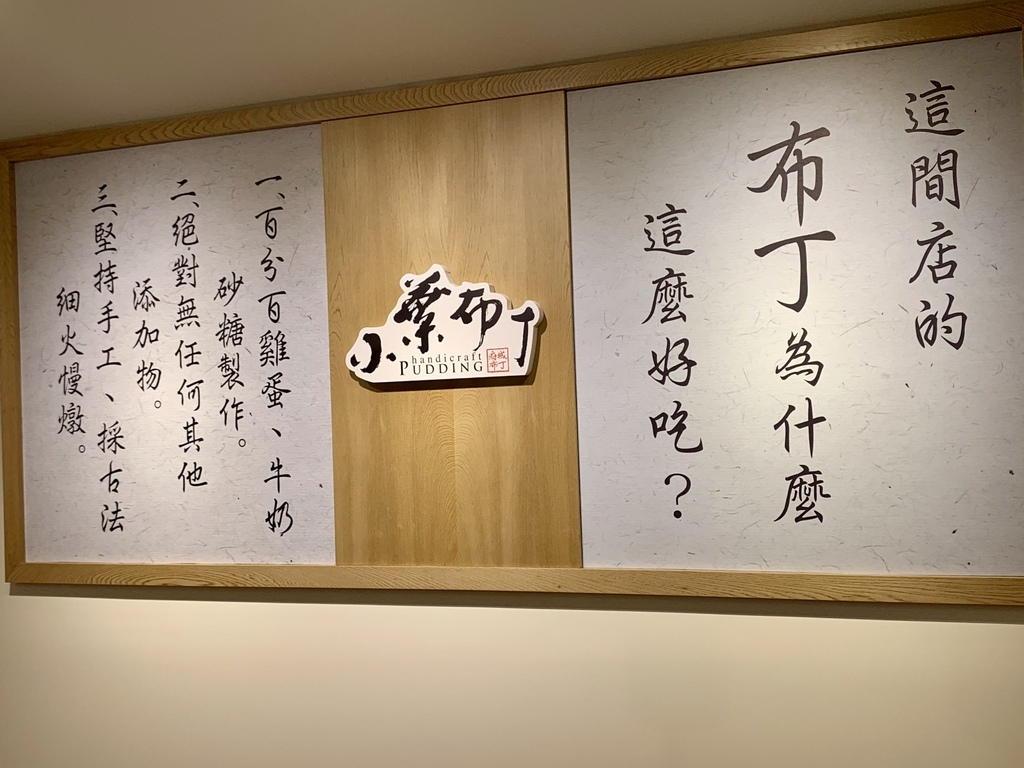 這間店的
布丁為什麼
這麼好吃？
小葉布丁
handicraft
PUDDING
府城
布丁
一、百分百雞蛋、牛奶
砂糖製作。
二、絕對無任何其他
添加物。
三、堅持手工、採古法
細火慢燉。